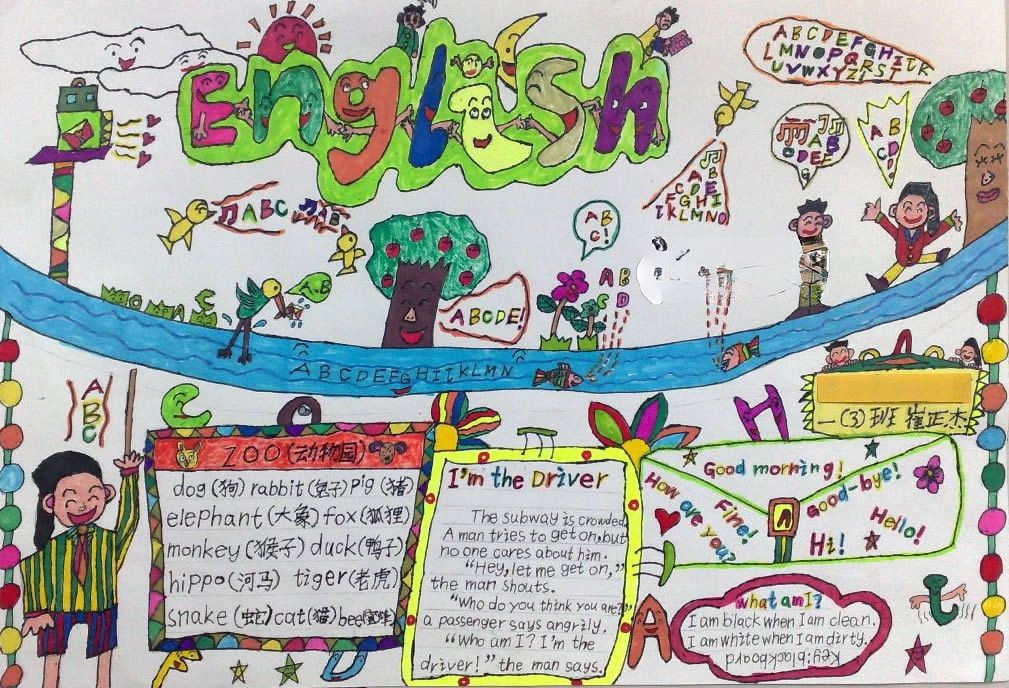 English
ABCDEFG
ABC
AB
CDEF
G
AB
CD!
AB
CDE
FGHI
JKLMNO
AB
C!
AB
CD
A.B
ABCDE!
ABCDEFGHIJKLMN
A
B
C
ZOO(动物园)
dog(狗) rabbit(兔子) pig(猪)
elephant(大象) fox(狐狸)
monkey(猴子) duck(鸭子)
hippo(河马) tiger(老虎)
snake(蛇) cat(猫) bee(蜜蜂)
I'm the Driver
The subway is crowded.
A man tries to get on, but
no one cares about him.
"Hey, let me get on,"
the man shouts.
"Who do you think you are?"
a passenger says angrily.
"Who am I? I'm the
driver!" the man says.
一(3)班 崔正杰
Good morning!
How are you?
Fine!
Good-bye!
Hello!
Hi!
What am I?
I am black when I am clean.
I am white when I am dirty.
Key: blackboard